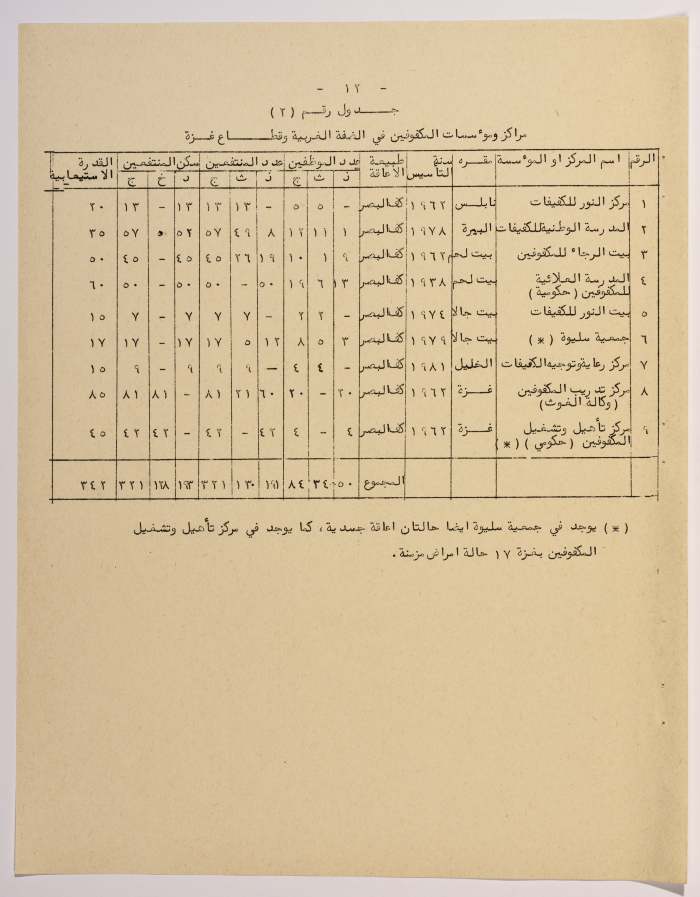 - ١٢ -
جـــدول رقم (٢)
مراكز ومؤسسات المكفوفين في الضفة الغربية وقطـــاع غزة
الرقم اسم المركز او المؤسسة مقره سنة التأسيس طبيعة الاعاقة عدد الموظفين عدد المنتفعين سكن المنتفعين القدرة الاستيعابية
ذ ث ج ذ ث ج د خ ج
١ مركز النور للكفيفات نابلس ١٩٦٢ كف البصر - ٥ ٥ - ١٣ ١٣ ١٣ - ١٣ ٢٠
٢ المدرسة الوطنية للكفيفات البيرة ١٩٧٨ كف البصر ١ ١١ ١٢ ٨ ٤٩ ٥٧ ٥٢ ٥ ٥٧ ٣٥
٣ بيت الرجاء للمكفوفين بيت لحم ١٩٦٢ كف البصر ٩ ١ ١٠ ١٩ ٢٦ ٤٥ ٤٥ - ٤٥ ٥٠
٤ المدرسة العلائية للمكفوفين (حكومية) بيت لحم ١٩٣٨ كف البصر ١٣ ٦ ١٩ ٥٠ - ٥٠ ٥٠ - ٥٠ ٦٠
٥ بيت النور للكفيفات بيت جالا ١٩٧٤ كف البصر - ٢ ٢ - ٧ ٧ ٧ - ٧ ١٥
٦ جمعية سليوة (*) بيت جالا ١٩٧٩ كف البصر ٣ ٥ ٨ ١٢ ٥ ١٧ ١٧ - ١٧ ١٧
٧ مركز رعاية وتوجيه الكفيفات الخليل ١٩٨١ كف البصر - ٤ ٤ - ٩ ٩ ٩ - ٩ ١٥
٨ مركز تدريب المكفوفين (وكالة الغوث) غـــزة ١٩٦٢ كف البصر ٢٠ - ٢٠ ٦٠ ٢١ ٨١ - ٨١ ٨١ ٨٥
٩ مركز تأهيل وتشغيل المكفوفين (حكومي) (*) غـــزة ١٩٦٢ كف البصر ٤ - ٤ ٤٢ - ٤٢ - ٤٢ ٤٢ ٤٥
المجموع ٥٠ ٣٤ ٨٤ ١٩١ ١٣٠ ٣٢١ ١٩٣ ١٢٨ ٣٢١ ٣٤٢
(*) يوجد في جمعية سليوة ايضا حالتان اعاقة جسدية، كما يوجد في مركز تأهيل وتشغيل
المكفوفين بغزة ١٧ حالة امراض مزمنة.